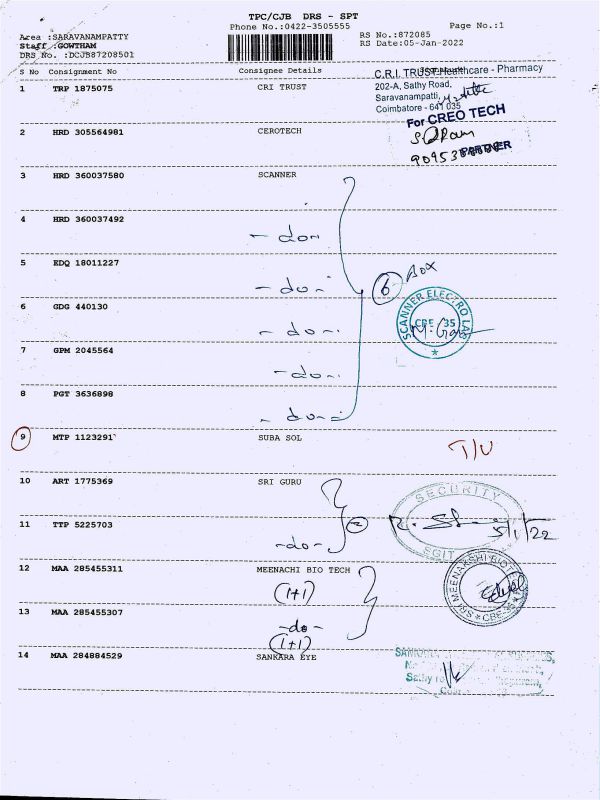 TPC/CJB DRS - SPT
Phone No.:0422-3505555
Page No.:1
Area :SARAVANAMPATTY
Staff :GOWTHAM
DRS No. :DCJB87208501
RS No.:872085
RS Date:05-Jan-2022
S No Consignment No Consignee Details
C.R.I. TRUST Healthcare - Pharmacy
202-A, Sathy Road,
Saravanampatti,
Coimbatore - 641 035
1 TRP 1875075 CRI TRUST
For CREO TECH
PARTNER
2 HRD 305564981 CEROTECH
3 HRD 360037580 SCANNER
4 HRD 360037492 -do-
5 EDQ 18011227 -do-
6 Box
6 GDG 440130 -do-
SCANNER ELECTRO LAB
CBE 35
7 GPM 2045564 -do-
8 PGT 3636898 -do-
9 MTP 1123291 SUBA SOL T/U
10 ART 1775369 SRI GURU
SECURITY
2
5/1/22
SGIT
11 TTP 5225703 -do-
12 MAA 285455311 MEENACHI BIO TECH
(1+1)
13 MAA 285455307 -do-
(1+1)
SRI MEENAKSHI BIOTECH
CBE
14 MAA 284884529 SANKARA EYE